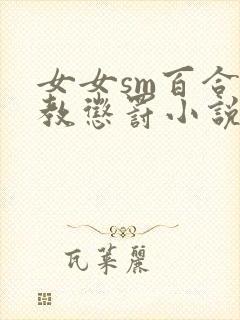 女女sm百合
教懲罰小說
瓦萊麗